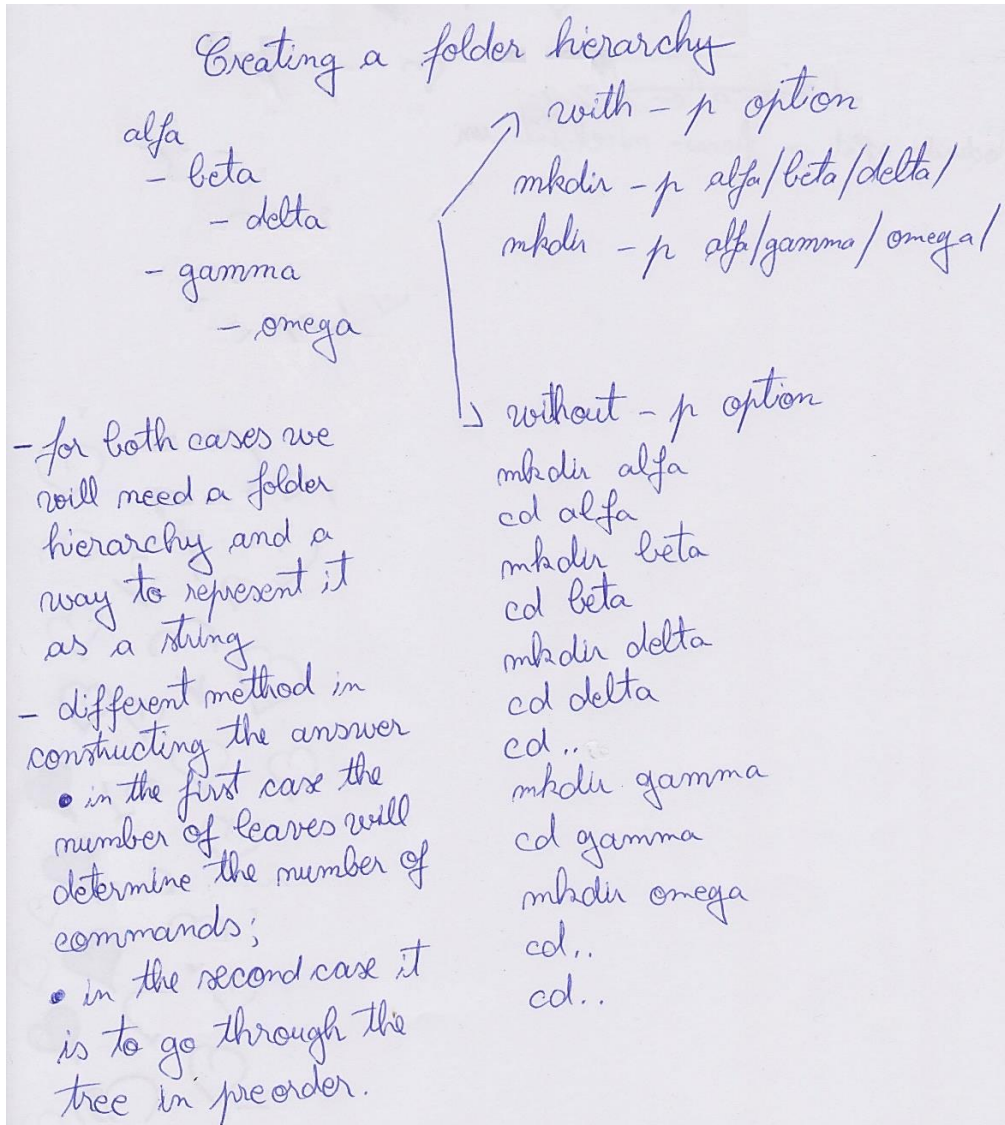 Creating a folder hierarchy
alfa
- beta
- delta
- gamma
- omega
with - p option
mkdir - p alfa/beta/delta/
mkdir - p alfa/gamma/omega/
without - p option
mkdir alfa
cd alfa
mkdir beta
cd beta
mkdir delta
cd delta
cd ..
mkdir gamma
cd gamma
mkdir omega
cd..
cd..
- for both cases we
will need a folder
hierarchy and a
way to represent it
as a string
- different method in
constructing the answer
• in the first case the
number of leaves will
determine the number of
commands;
• in the second case it
is to go through the
tree in preorder.